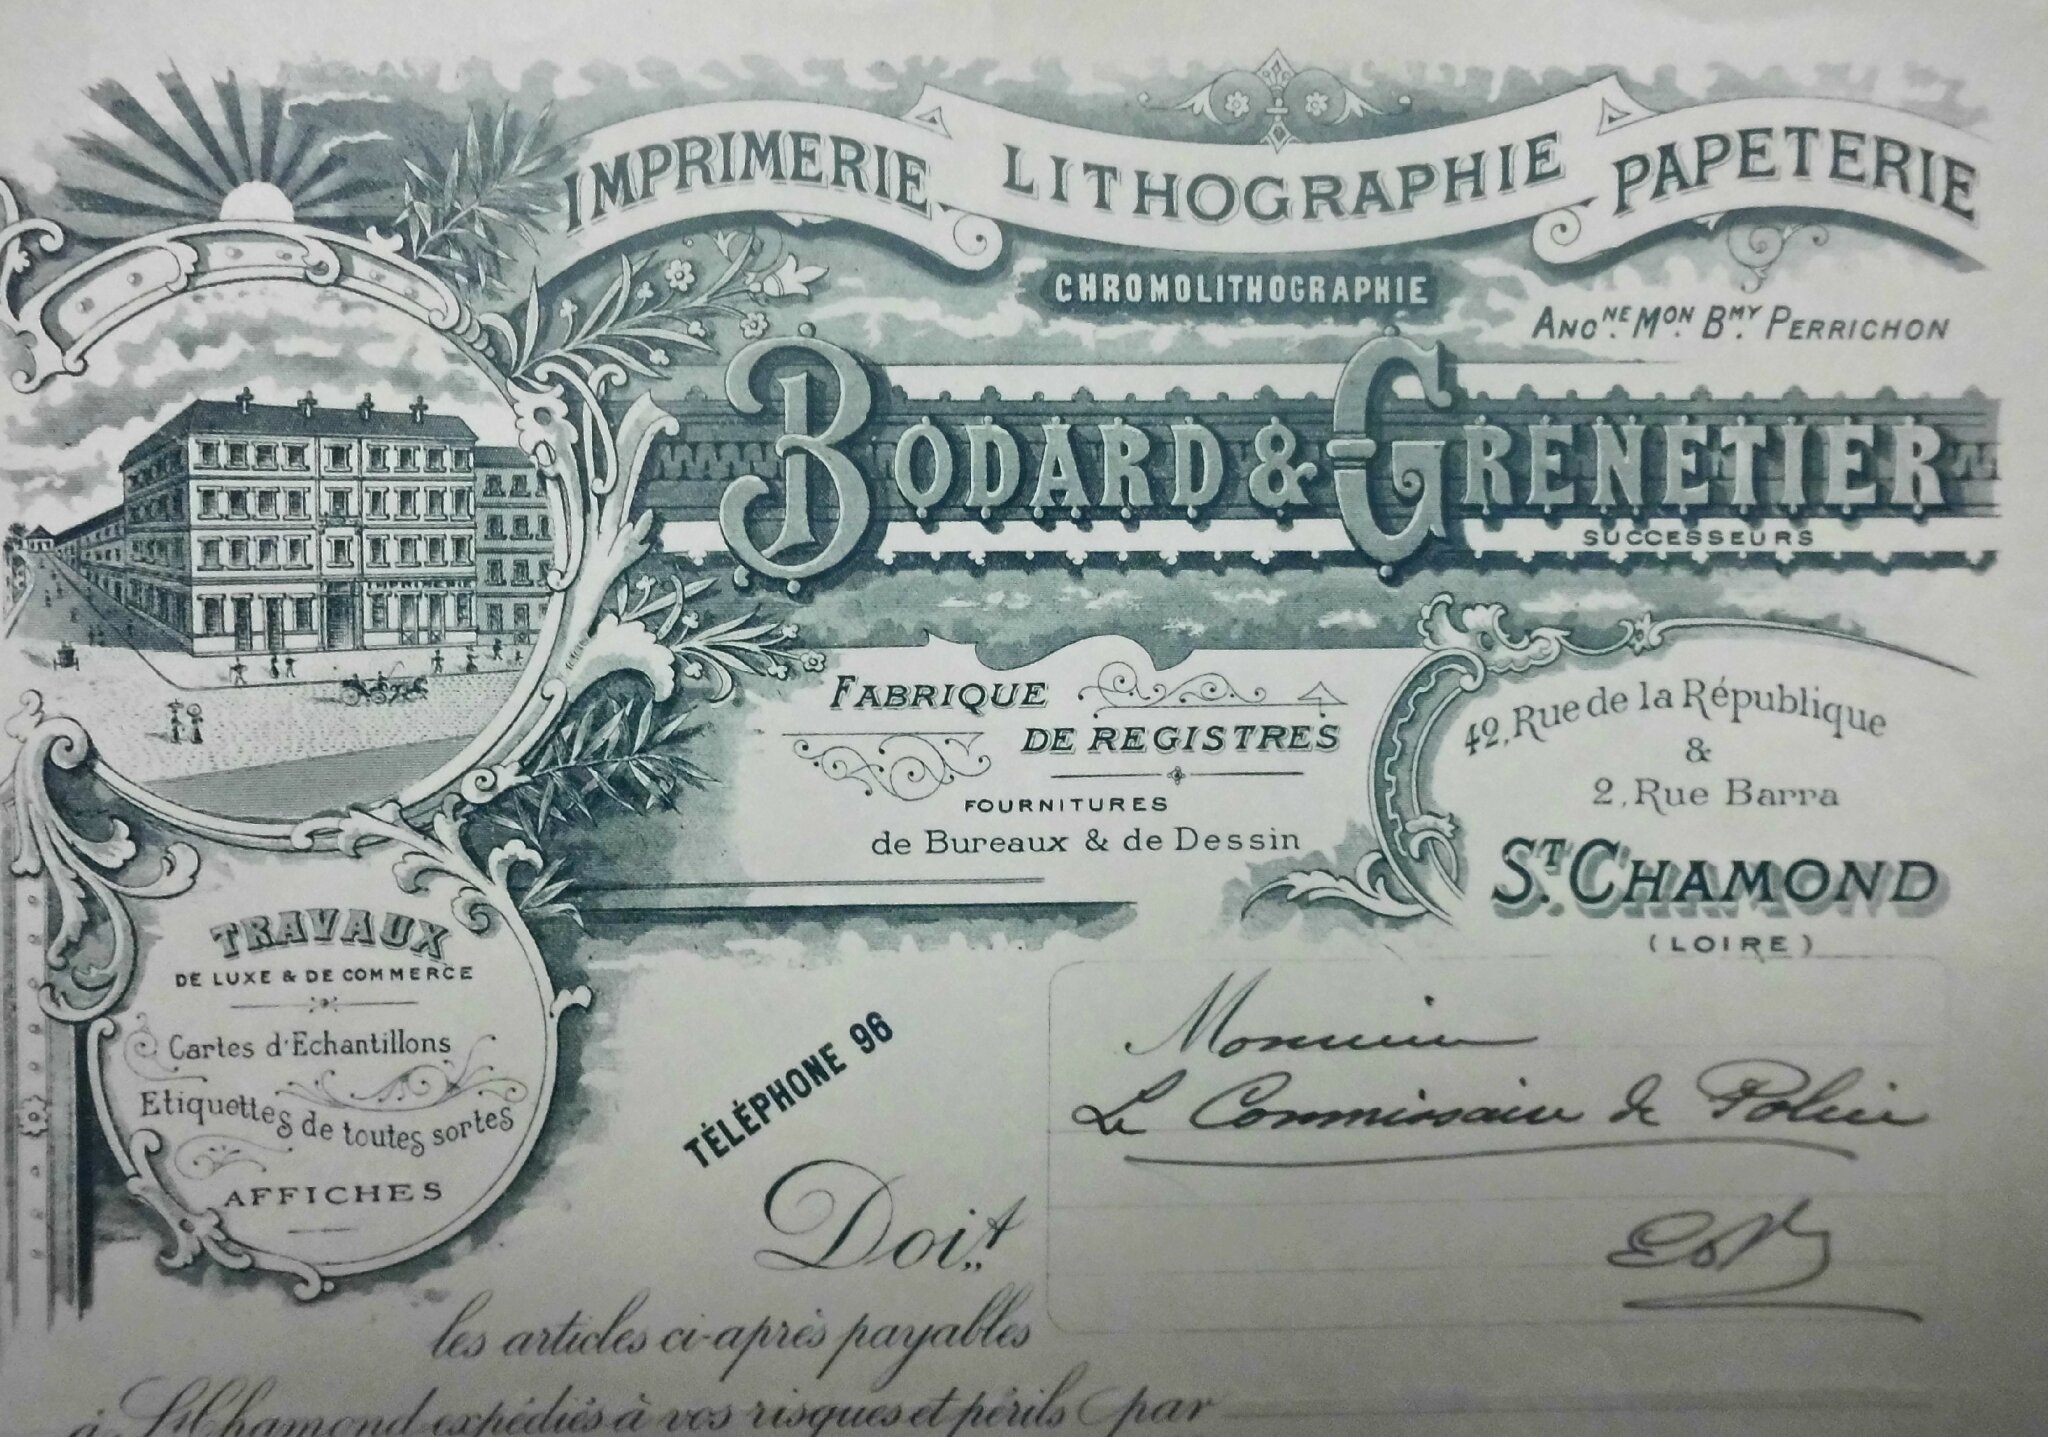 IMPRIMERIE LITHOGRAPHIE PAPETERIE
CHROMOLITHOGRAPHIE
ANC.NE MON BMY. PERRICHON
BODARD & GRENETIER
SUCCESSEURS
IMPRIMERIE
FABRIQUE
DE REGISTRES
FOURNITURES
de Bureaux & de Dessin
42, Rue de la République
&
2, Rue Barra
ST. CHAMOND
(LOIRE)
TRAVAUX
DE LUXE & DE COMMERCE
Cartes d'Echantillons
Etiquettes de toutes sortes
AFFICHES
TÉLÉPHONE 96
Monsieur
Le Commissaire de Police
Doit
les articles ci-après payables
à St Chamond expédiés à vos risques et périls par